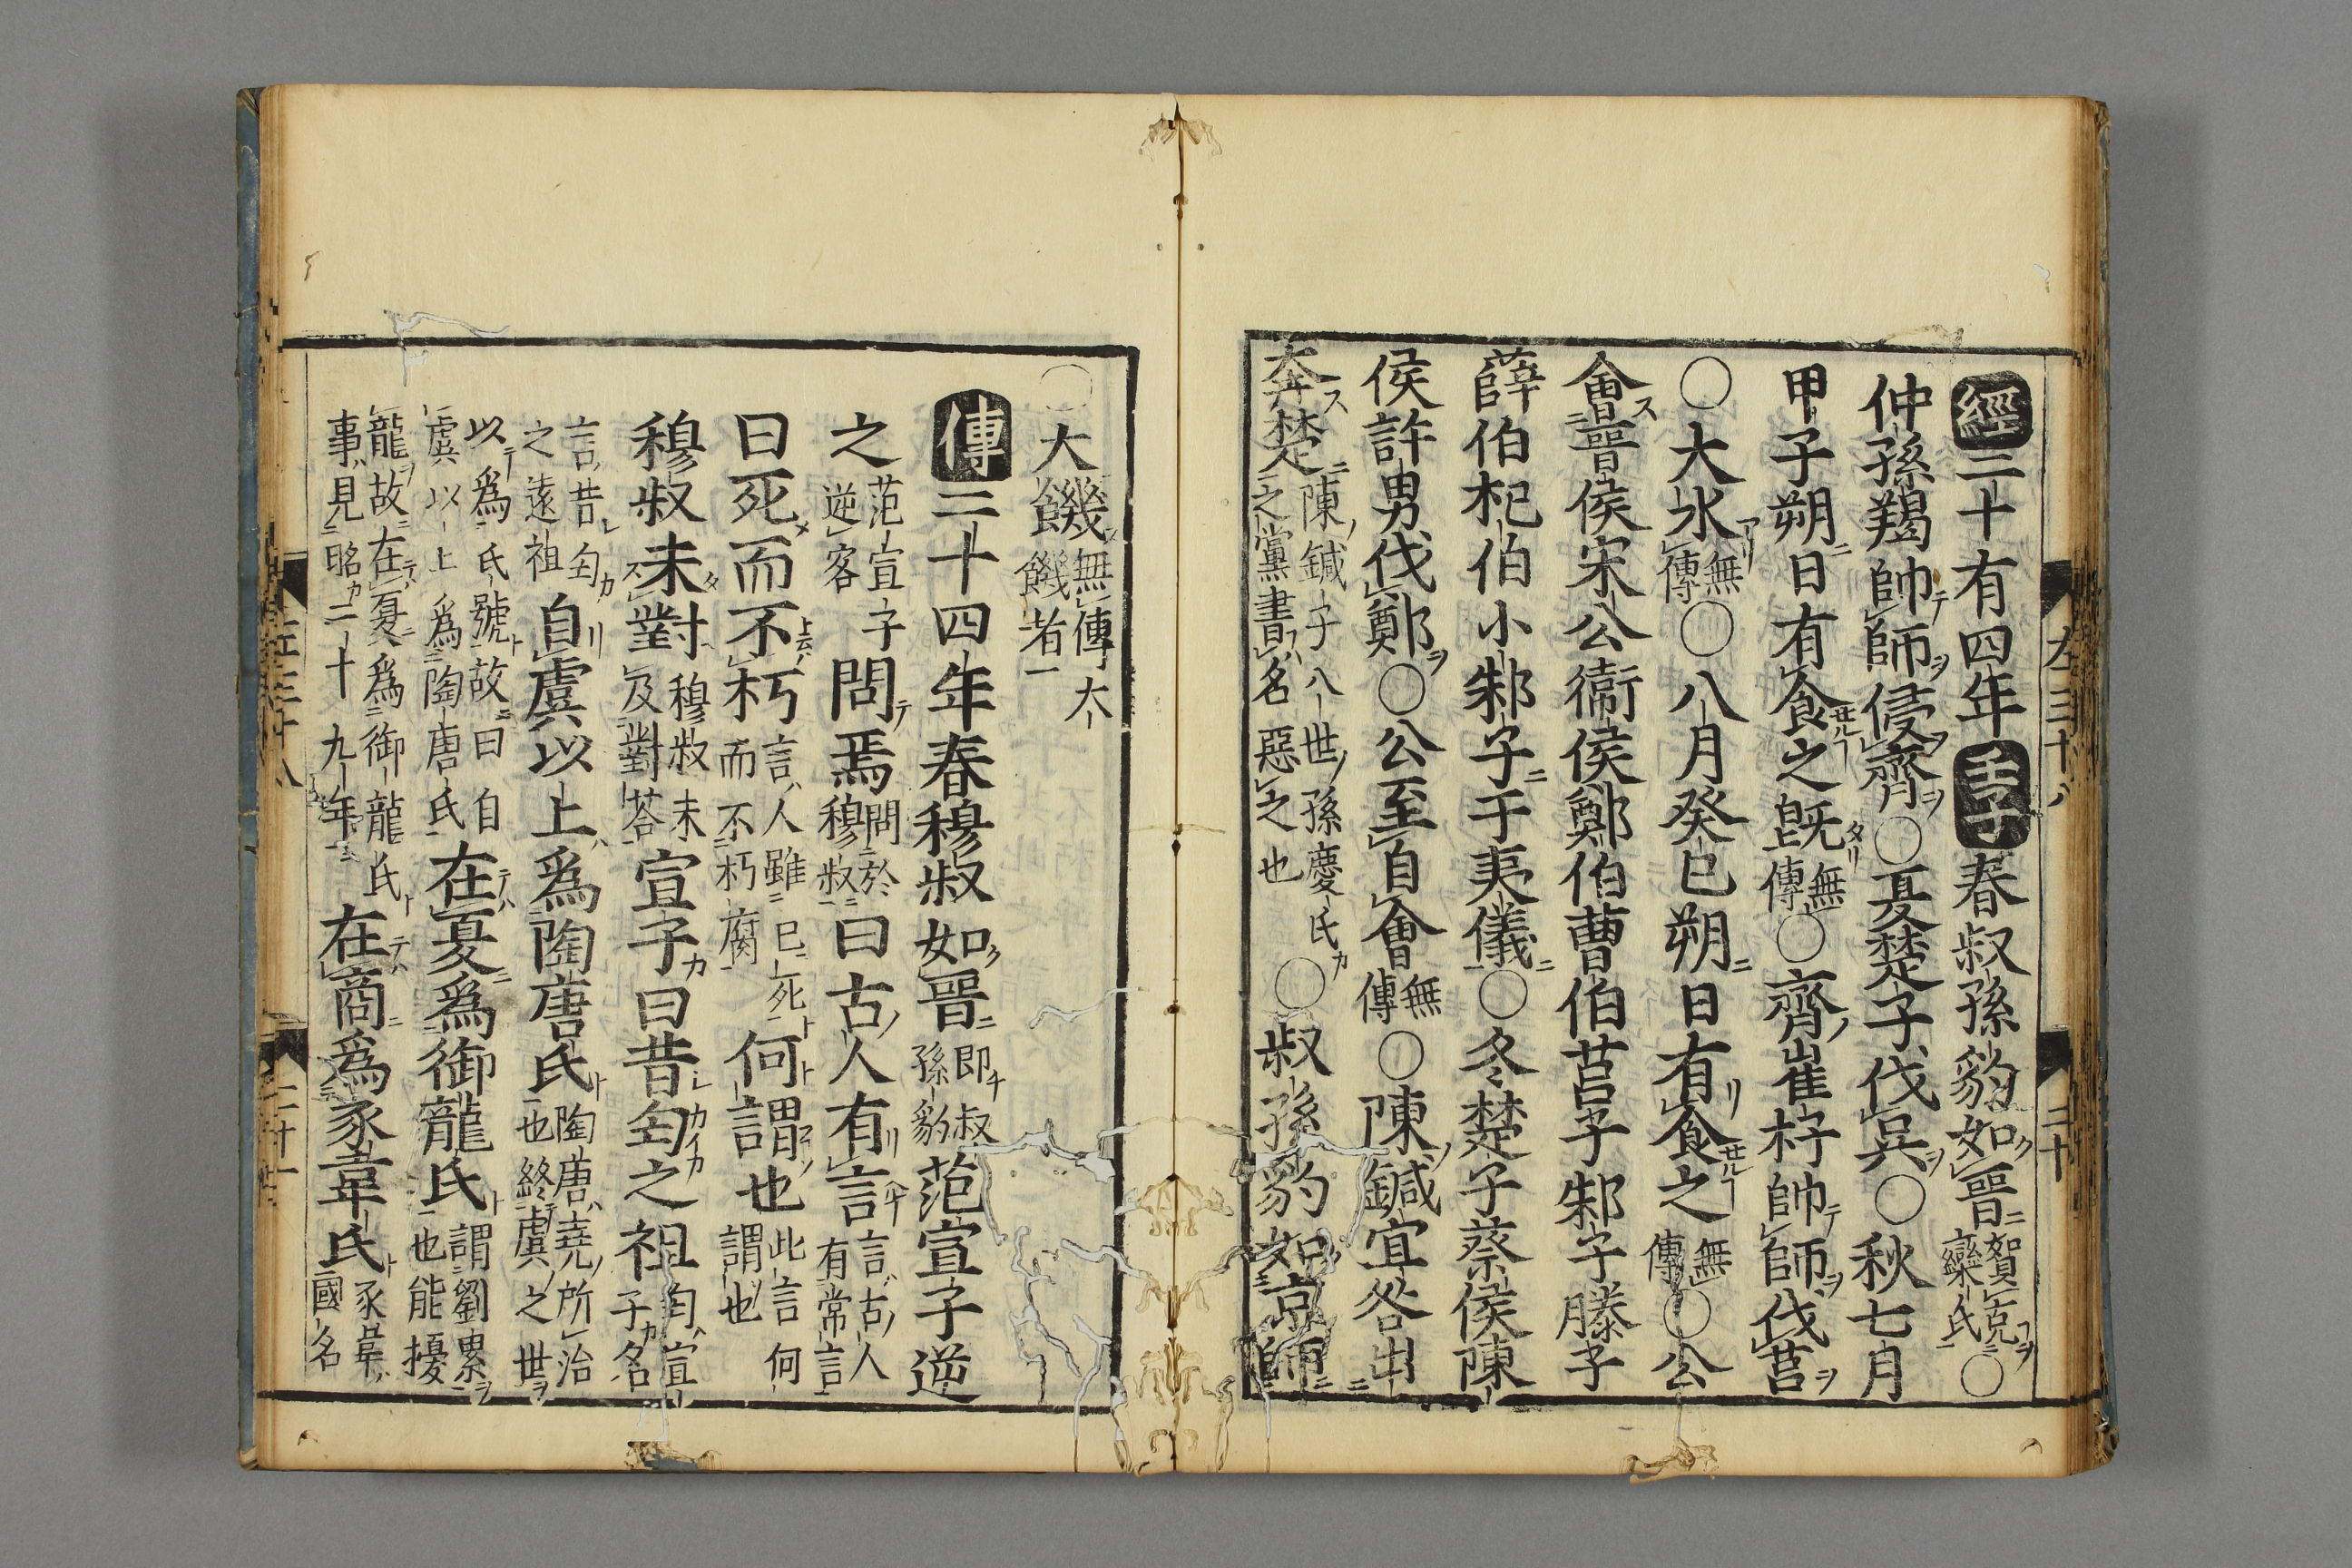 經二十有四年壬子春叔孫豹如晉賀克欒氏○
仲孫羯帥師侵齊○夏楚子伐吳○秋七月
甲子朔日有食之既無傳○齊崔杼帥師伐莒
○大水無傳○八月癸巳朔日有食之無傳○公
會晉侯宋公衞侯鄭伯曹伯莒子邾子滕子
薛伯杞伯小邾子于夷儀○冬楚子蔡侯陳
侯許男伐鄭○公至自會無傳○陳鍼宜咎出
奔楚陳鍼子八世孫慶氏之黨書名惡之也○叔孫豹如京師
○大饑無傳大饑者一
傳二十四年春穆叔如晉即叔孫豹范宣子逆
之范宣子逆客問焉問於穆叔曰古人有言言古人有常言
曰死而不朽言人雖已死而不朽腐何謂也此言何謂也
穆叔未對穆叔未及對荅宣子曰昔匄之祖匄宣子名
言昔匄之遠祖自虞以上爲陶唐氏陶唐堯所治也終虞之世
以爲氏號故曰自虞以上爲陶唐氏在夏爲御龍氏謂劉累也能擾
龍故在夏爲御龍氏事見昭二十九年在商爲豕韋氏豕韋國名
左三十八
二十
左三十八
二十一